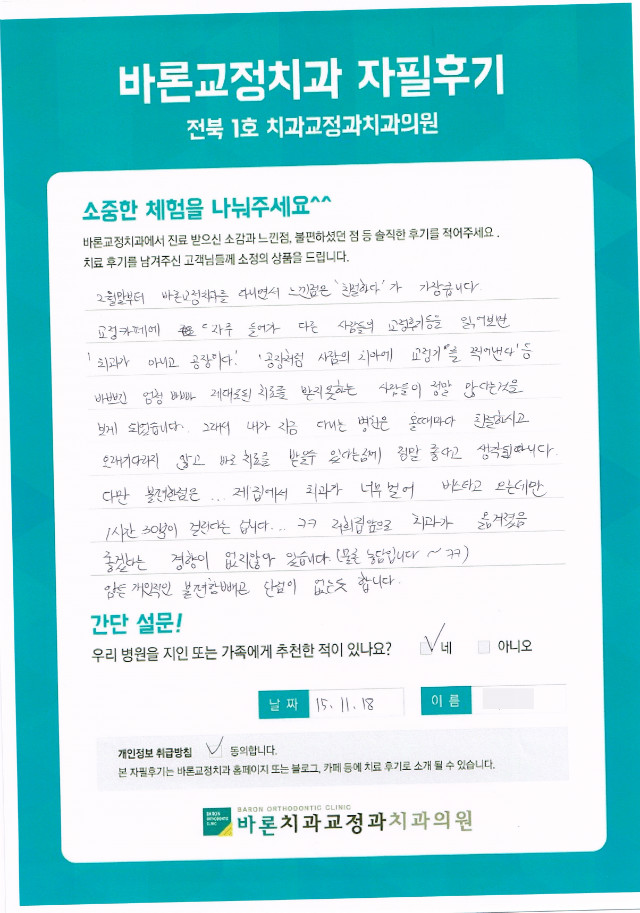 바론교정치과 자필후기
전북 1호 치과교정과치과의원
소중한 체험을 나눠주세요^^
바론교정치과에서 진료 받으신 소감과 느낀점, 불편하셨던 점 등 솔직한 후기를 적어주세요 .
치료 후기를 남겨주신 고객님들께 소정의 상품을 드립니다.
2월말부터 바론교정치과를 다니면서 느낀점은 '친절하다' 가 가장큽니다.
교정카페에 자주 들어가 다른 사람들의 교정후기등을 읽어보면
'치과가 아니고 공장이다.' '공장처럼 사람의 치아에 교정기를 찍어낸다' 등
엄청 바빠 제대로된 치료를 받지못하는 사람들이 정말 많다는것을
보게 되었습니다. 그래서 내가 지금 다니는 병원은 올때마다 친절하시고
오래기다리지 않고 바로 치료를 받을수 있다는점에 정말 좋다고 생각됩니다.
다만 불편한점은 ... 제 집에서 치과가 너무 멀어 버스타고 오는데만
1시간 30분이 걸린다는 겁니다... ㅋㅋ 저희집앞으로 치과가 옮겨졌음
좋겠다는 경향이 없지않아 있습니다. (물론 농담입니다 ~ ㅋㅋ)
암튼 개인적인 불편함빼곤 단점이 없는듯 합니다.
간단 설문!
우리 병원을 지인 또는 가족에게 추천한 적이 있나요? 네 아니오
날 짜 15. 11. 18 이 름
개인정보 취급방침 동의합니다.
본 자필후기는 바론교정치과 홈페이지 또는 블로그, 카페 등에 치료 후기로 소개 될 수 있습니다.
BARON ORTHODONTIC CLINIC
바론치과교정과치과의원